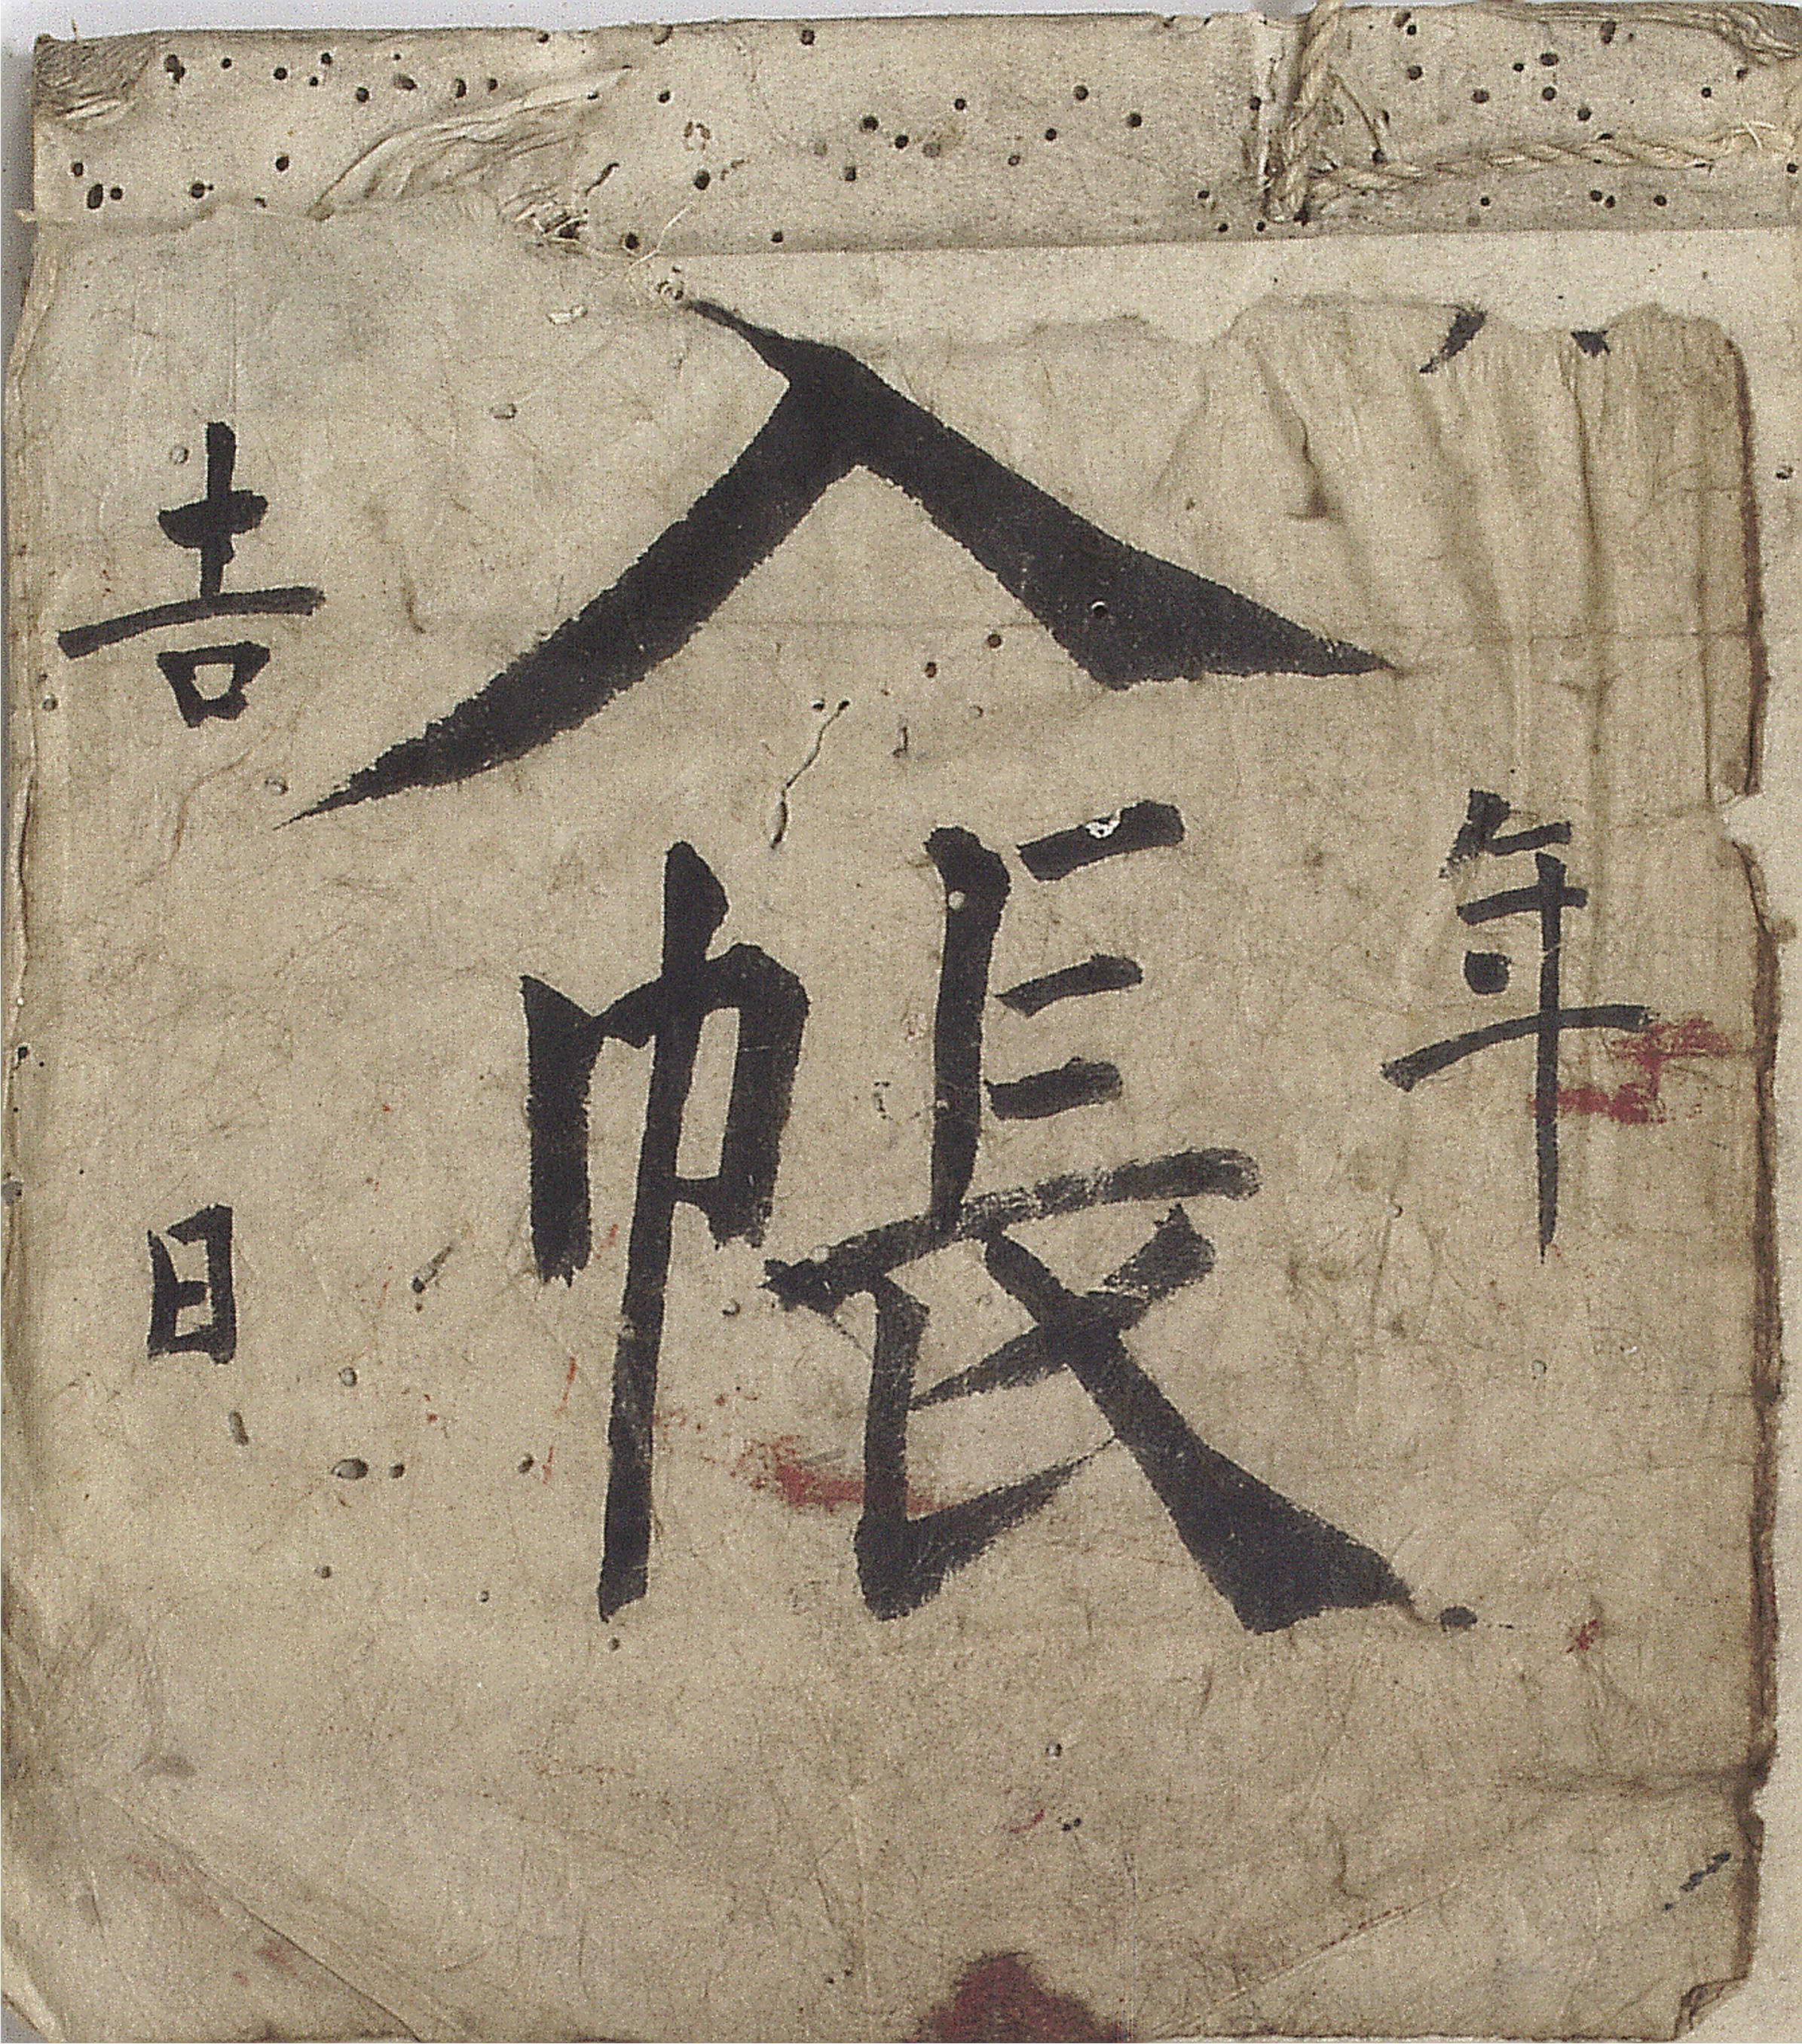 年
入帳
吉日